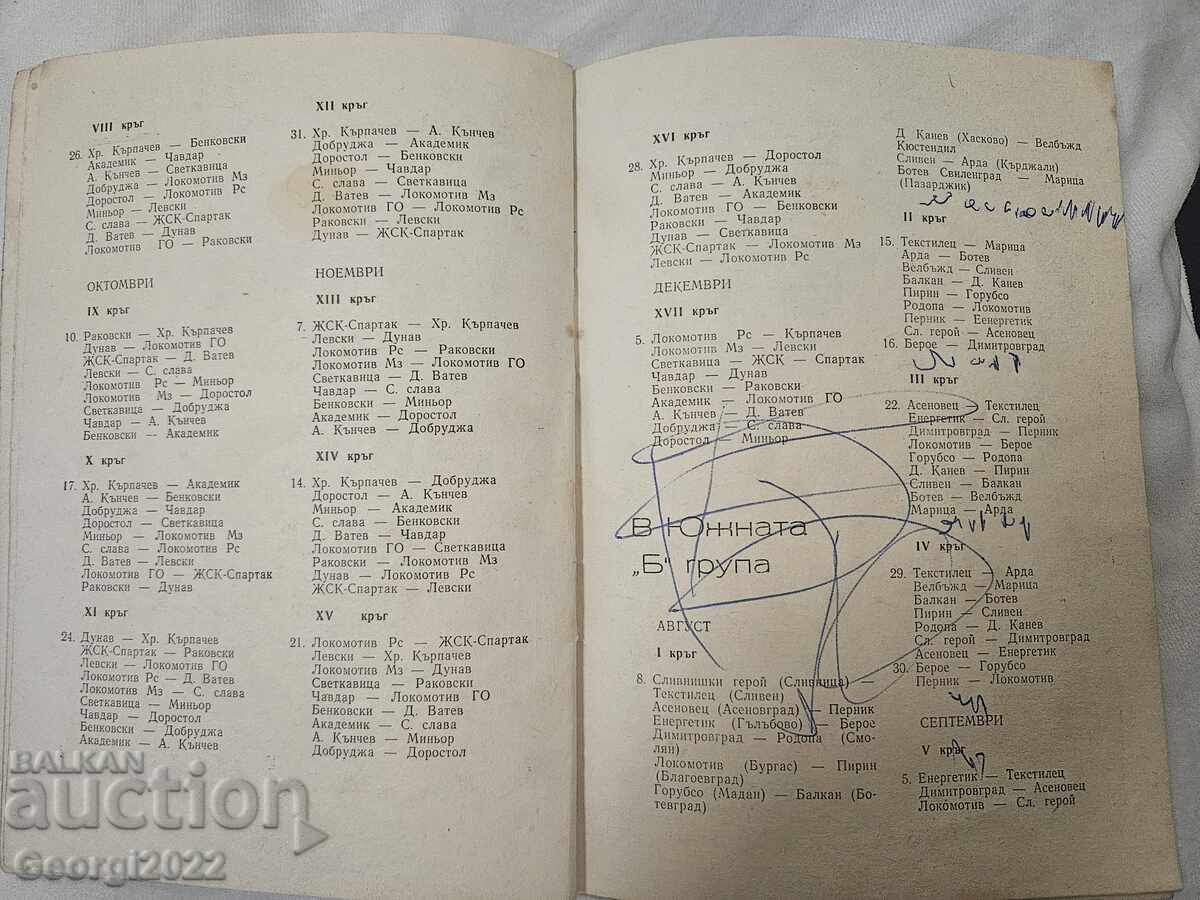 VIII кръг
26. Хр. Кърпачев — Бенковски
Академик — Чавдар
А. Кънчев — Светкавица
Добруджа — Локомотив Мз
Доростол — Локомотив Рс
Миньор — Левски
С. слава — ЖСК-Спартак
Д. Ватев — Дунав
Локомотив ГО — Раковски
ОКТОМВРИ
IX кръг
10. Раковски — Хр. Кърпачев
Дунав — Локомотив ГО
ЖСК-Спартак — Д. Ватев
Левски — С. слава
Локомотив Рс — Миньор
Локомотив Мз — Доростол
Светкавица — Добруджа
Чавдар — А. Кънчев
Бенковски — Академик
X кръг
17. Хр. Кърпачев — Академик
А. Кънчев — Бенковски
Добруджа — Чавдар
Доростол — Светкавица
Миньор — Локомотив Мз
С. слава — Локомотив Рс
Д. Ватев — Левски
Локомотив ГО — ЖСК-Спартак
Раковски — Дунав
XI кръг
24. Дунав — Хр. Кърпачев
ЖСК-Спартак — Раковски
Левски — Локомотив ГО
Локомотив Рс — Д. Ватев
Локомотив Мз — С. слава
Светкавица — Миньор
Чавдар — Доростол
Бенковски — Добруджа
Академик — А. Кънчев
XII кръг
31. Хр. Кърпачев — А. Кънчев
Добруджа — Академик
Доростол — Бенковски
Миньор — Чавдар
С. слава — Светкавица
Д. Ватев — Локомотив Мз
Локомотив ГО — Локомотив Рс
Раковски — Левски
Дунав — ЖСК-Спартак
НОЕМВРИ
XIII кръг
7. ЖСК-Спартак — Хр. Кърпачев
Левски — Дунав
Локомотив Рс — Раковски
Локомотив Мз — Локомотив ГО
Светкавица — Д. Ватев
Чавдар — С. слава
Бенковски — Миньор
Академик — Доростол
А. Кънчев — Добруджа
XIV кръг
14. Хр. Кърпачев — Добруджа
Доростол — А. Кънчев
Миньор — Академик
С. слава — Бенковски
Д. Ватев — Чавдар
Локомотив ГО — Светкавица
Раковски — Локомотив Мз
Дунав — Локомотив Рс
ЖСК-Спартак — Левски
XV кръг
21. Локомотив Рс — ЖСК-Спартак
Левски — Хр. Кърпачев
Локомотив Мз — Дунав
Светкавица — Раковски
Чавдар — Локомотив ГО
Бенковски — Д. Ватев
Академик — С. слава
А. Кънчев — Миньор
Добруджа — Доростол
XVI кръг
28. Хр. Кърпачев — Доростол
Миньор — Добруджа
С. слава — А. Кънчев
Д. Ватев — Академик
Локомотив ГО — Бенковски
Раковски — Чавдар
Дунав — Светкавица
ЖСК-Спартак — Локомотив Мз
Левски — Локомотив Рс
ДЕКЕМВРИ
XVII кръг
5. Локомотив Рс — Кърпачев
Локомотив Мз — Левски
Светкавица — ЖСК — Спартак
Чавдар — Дунав
Бенковски — Раковски
Академик — Локомотив ГО
А. Кънчев — Д. Ватев
Добруджа — С. слава
Доростол — Миньор
В Южната
„Б“ група
АВГУСТ
I кръг
8. Сливнишки герой (Сливница) —
Текстилец (Сливен)
Асеновец (Асеновград) — Перник
Енергетик (Гълъбово) — Берое
Димитровград — Родопа (Смо-
лян)
Локомотив (Бургас) — Пирин
(Благоевград)
Горубсо (Мадан) — Балкан (Бо-
тевград)
Д Канев (Хасково) — Велбъжд
Кюстендил
Сливен — Арда (Кърджали)
Ботев Свиленград — Марица
(Пазарджик)
II кръг
15. Текстилец — Марица
Арда — Ботев
Велбъжд — Сливен
Балкан — Д. Канев
Пирин — Горубсо
Родопа — Локомотив
Перник — Еенергетик
Сл. герой — Асеновец
16. Берое — Димитровград
III кръг
22. Асеновец — Текстилец
Енергетик — Сл. герой
Димитровград — Перник
Локомотив — Берое
Горубсо — Родопа
Д. Канев — Пирин
Сливен — Балкан
Ботев — Велбъжд
Марица — Арда
IV кръг
29. Текстилец — Арда
Велбъжд — Марица
Балкан — Ботев
Пирин — Сливен
Родопа — Д. Канев
Сл. герой — Димитровград
Асеновец — Енергетик
30. Берое — Горубсо
Перник — Локомотив
СЕПТЕМВРИ
V кръг
5. Енергетик — Текстилец
Димитровград — Асеновец
Локомотив — Сл. герой
BALKAN
auction
Georgi2022